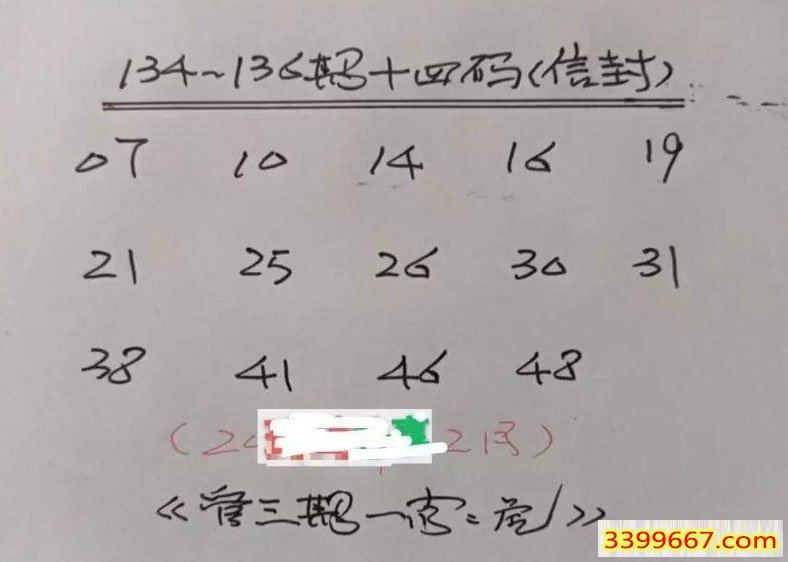 134~136期十四码(信封)
07 10 14 16 19
21 25 26 30 31
38 41 46 48
(2 2
《管三期一
3399667.com